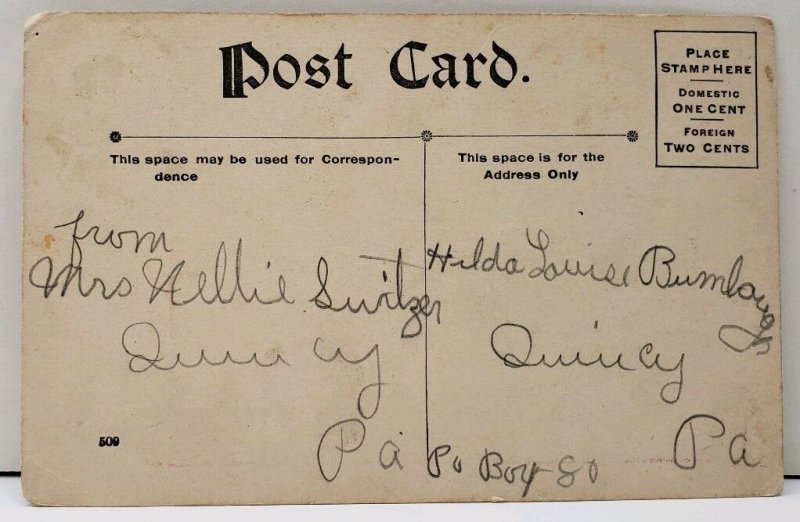 Post Card.
PLACE
STAMP HERE
DOMESTIC
ONE CENT
FOREIGN
TWO CENTS
This space may be used for Correspon-
dence
This space is for the
Address Only
from
Mrs Nellie Switzer
Quincy
Pa
509
Hilda Louise Bumbaugh
Quincy
Pa
Po Boy 80